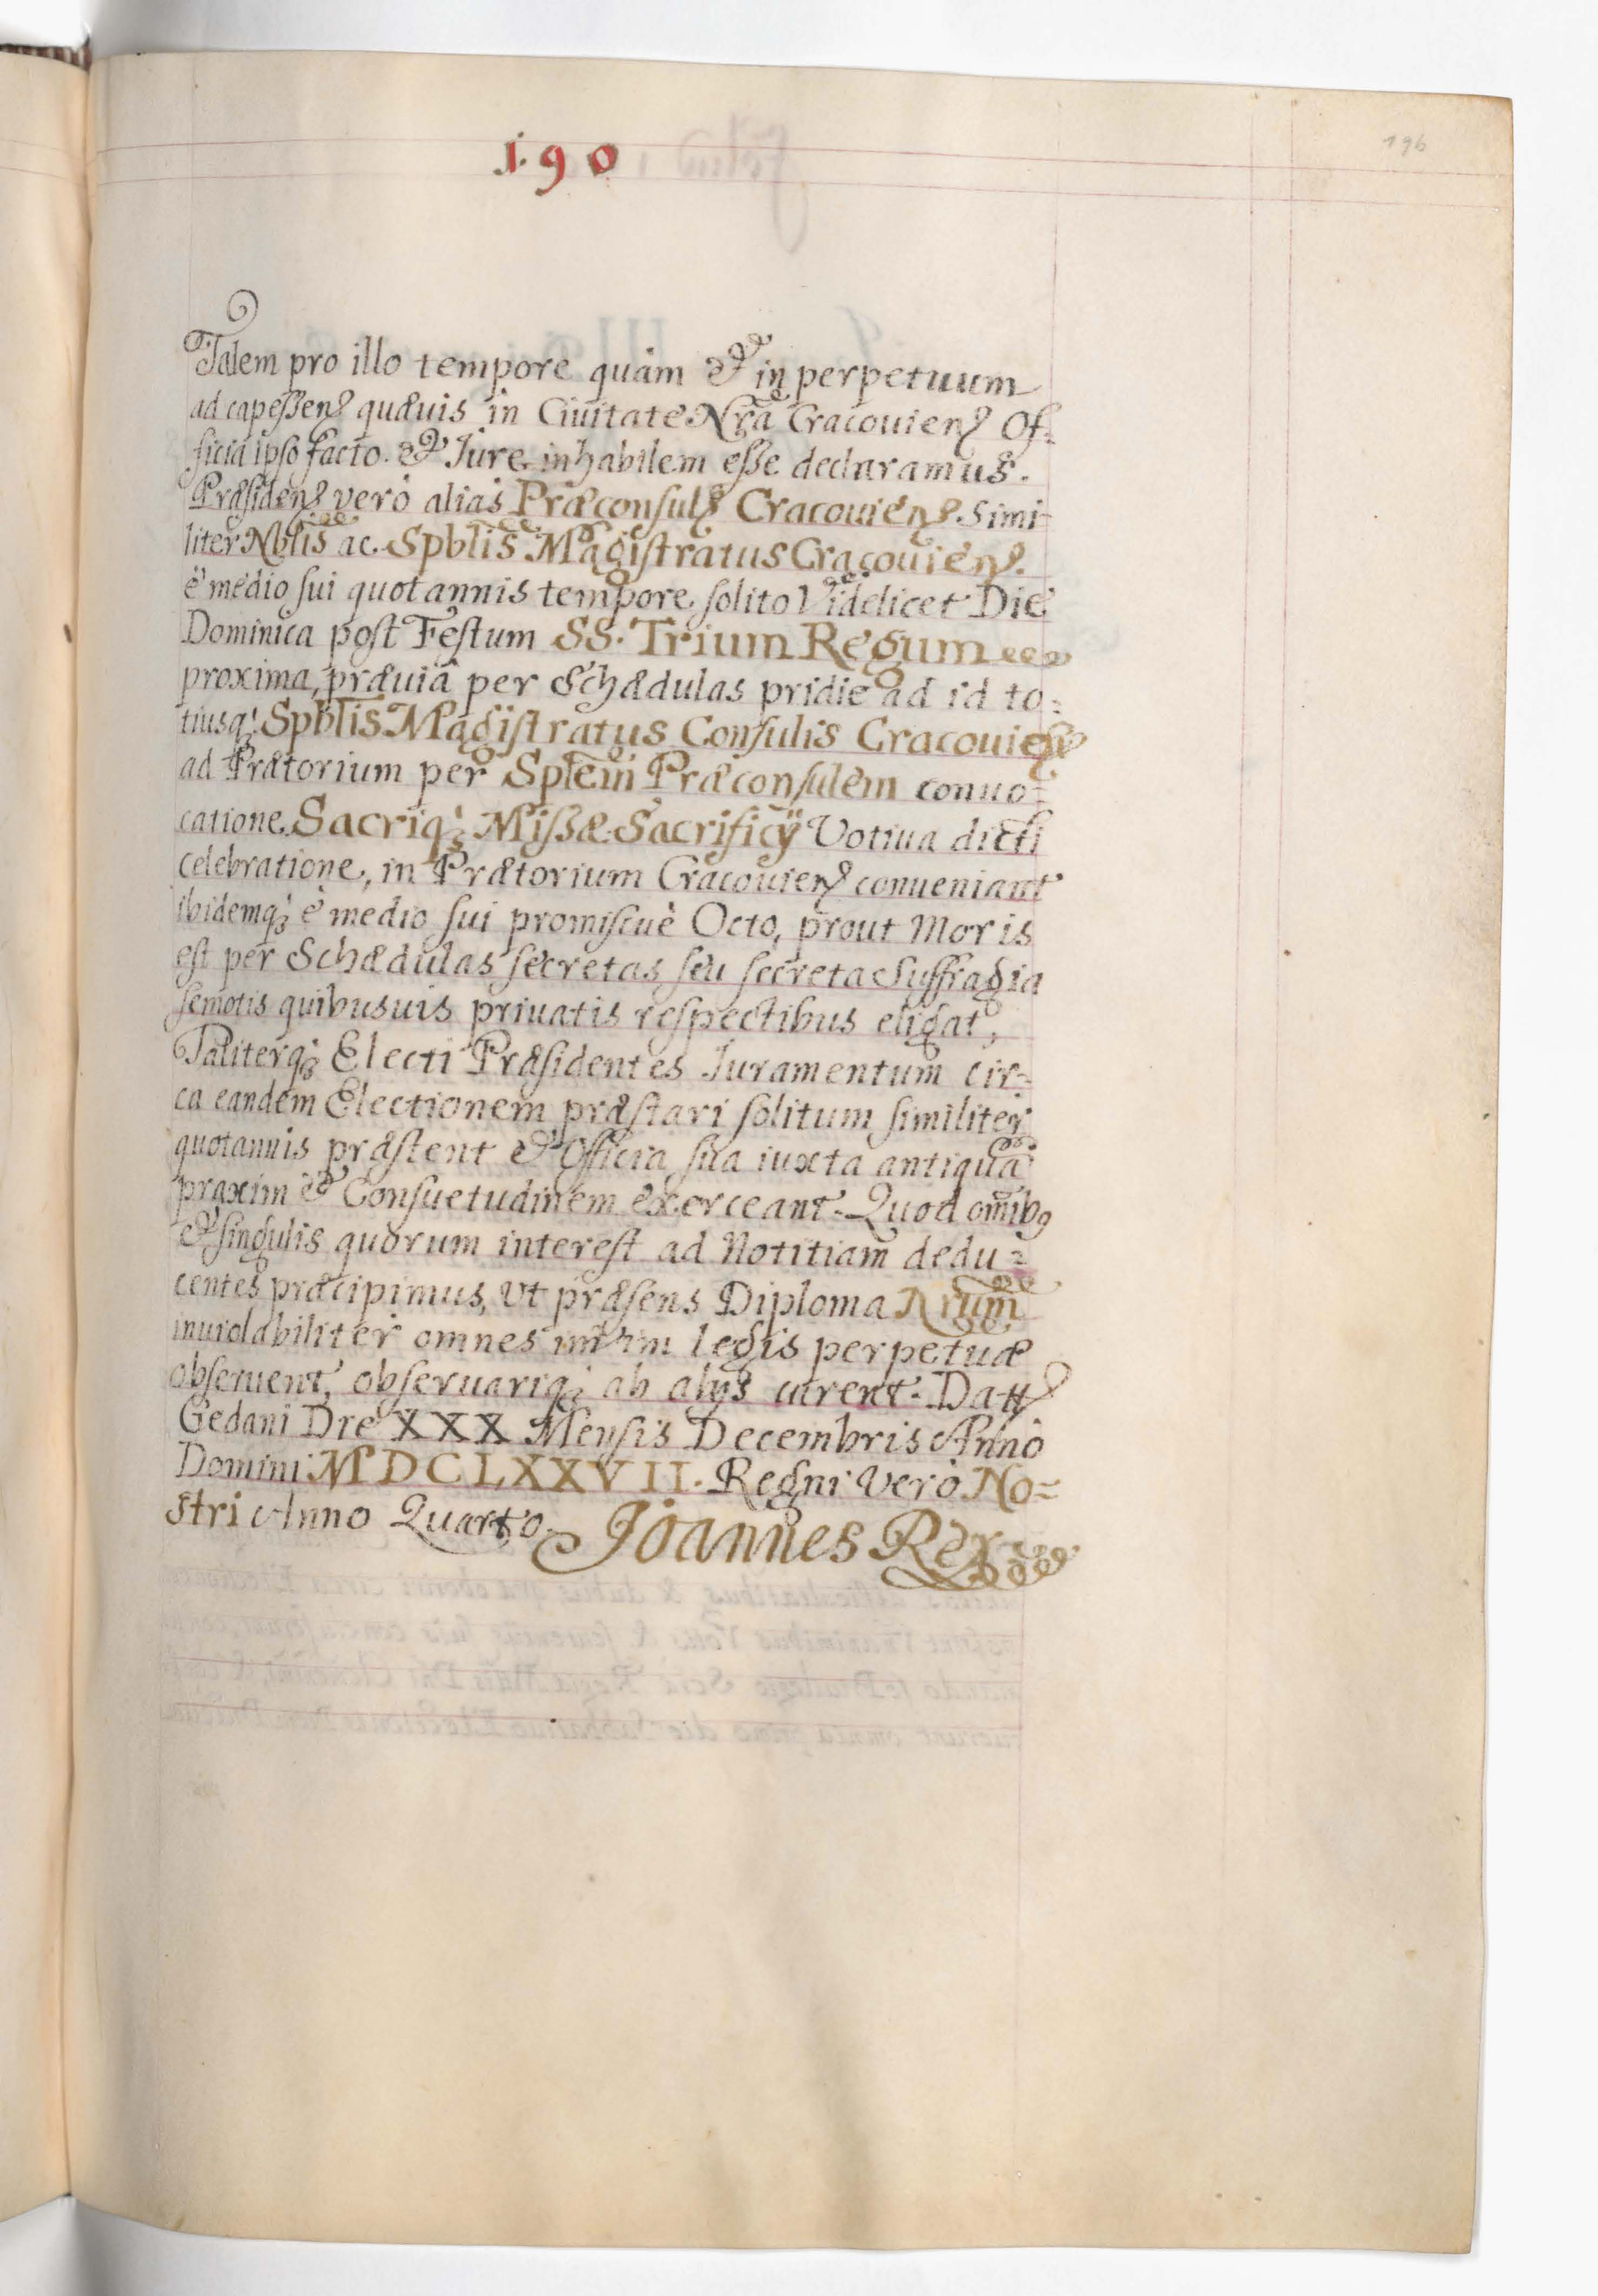 1.90
196
Talem pro illo tempore quàm & in perpetuum
ad capeßen quævis in Ciuitate Nrã Cracouien Of=
ficia ipso facto & Iure inhabilem eße declaramus.
Præsiden verò alias Præconsul Cracouien. Simi=
liter Nblis ac Spblis Magistratus Cracouien.
è medio sui quotannis tempore solito Videlicet Die
Dominica post Festum SS. Trium Regum
proxima, præuiâ per Schædulas pridie ad id to=
tiusq; Spblis Magistratus Consulis Cracouien
ad Prætorium per Splem Præconsulem conuo=
catione. Sacriq; Mißæ Sacrificÿ Votiua dicti
celebratione, in Prætorium Cracouien conueniant
ibidemq; è medio sui promiscuè Octo, prout Moris
est per Schædulas secretas seu secreta Suffragia
semotis quibusuis priuatis respectibus eligat,
Taliterq; Electi Præsidentes Iuramentum cir=
ca eandem Electionem præstari solitum similiter
quotannis præstent & Officia sua iuxta antiquã
praxim & Consuetudinem exerceant. Quod omnib9
& singulis quorum interest ad Notitiam dedu=
centes præcipimus, Vt præsens Diploma Nrum
inuiolabiliter omnes legis perpetuæ
obseruent, obseruariq; ab alÿs curent. Datt
Gedani Die XXX Mensis Decembris Anno
Domini MDCLXXVII. Regni Verò No=
stri Anno Quarto. Joannes Rex